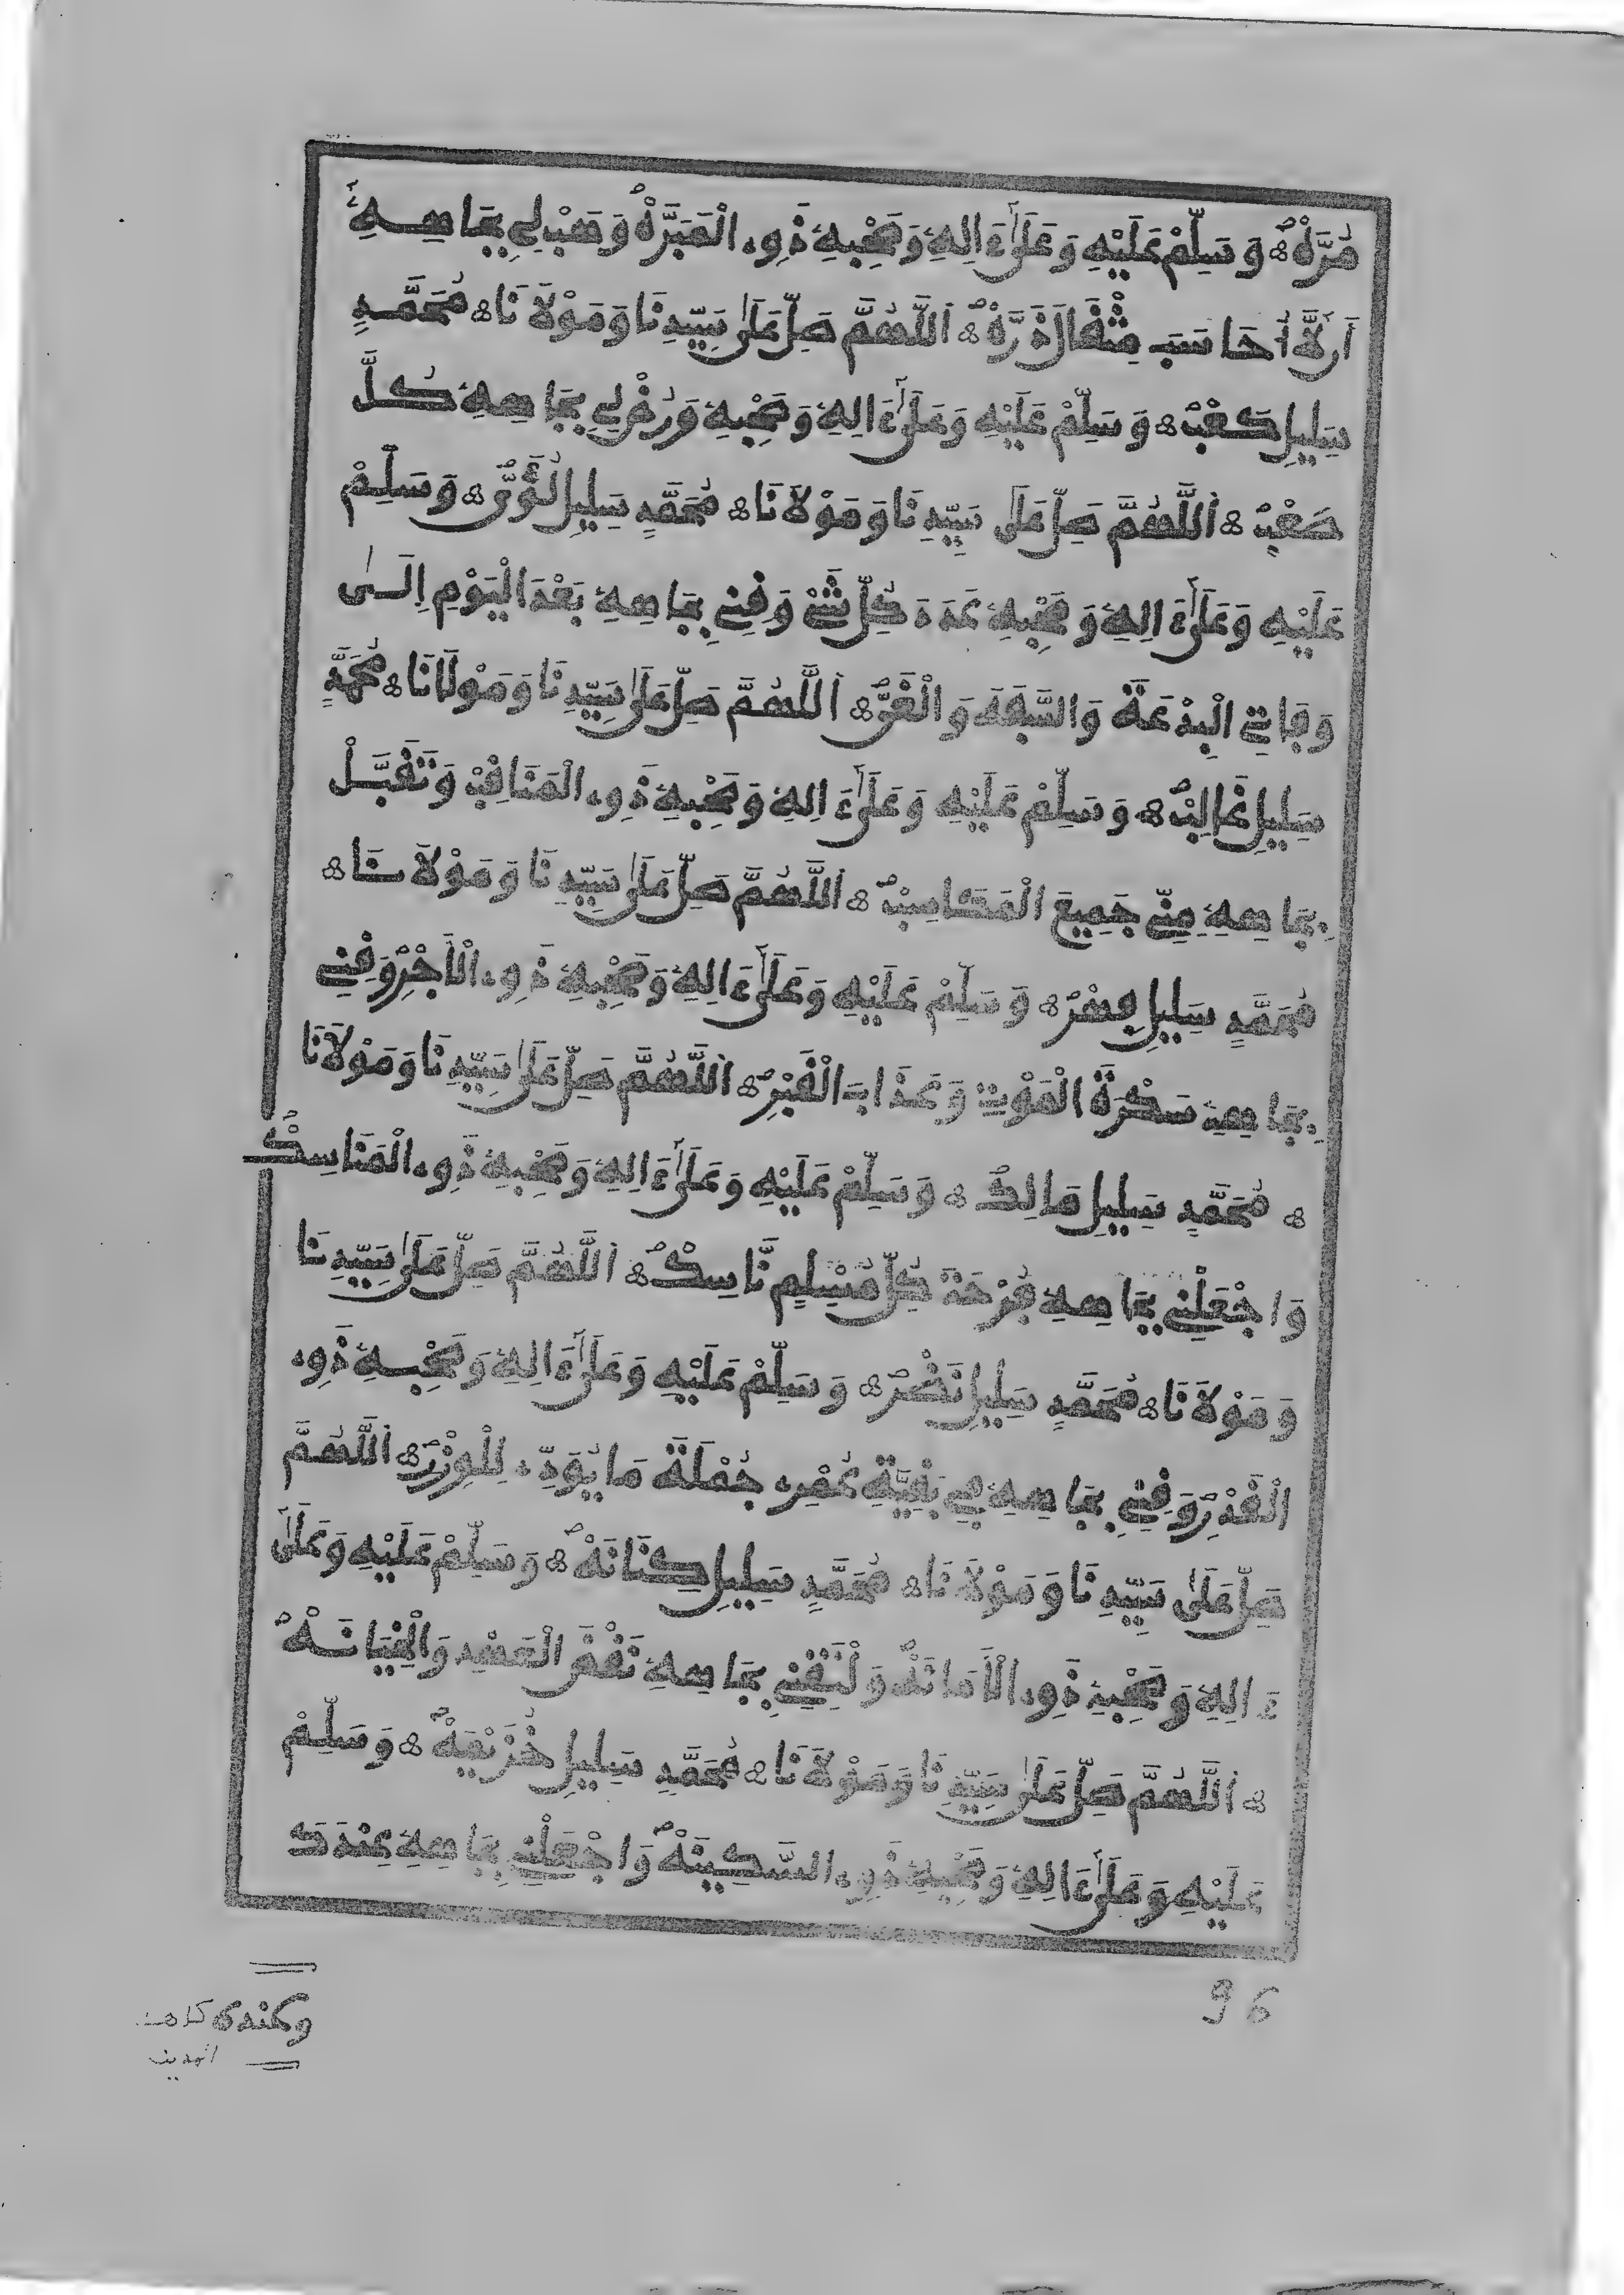 مُرَّةْ ۞ وَسَلِّمْ عَلَيْهِ وَعَلَىٰٓ ءَالِهِ وَصَحْبِهِ ذَوِے الْمَبَرَّةْ وَهَبْ لِي بِجَاهِهِ
أَن لَّآ أُحَاسَبَ مِثْقَالَ ذَرَّةْ ۞ اَللَّهُمَّ صَلِّ عَلَىٰ سَيِّدِنَا وَمَوْلَانَا ۞ مُحَمَّدٍ
سَلِيلِ كَعْبْ ۞ وَسَلِّمْ عَلَيْهِ وَعَلَىٰٓ ءَالِهِ وَصَحْبِهِ وَرُضْ لِي بِجَاهِهِ كُلَّ
صَعْبْ ۞ اَللَّهُمَّ صَلِّ عَلَىٰ سَيِّدِنَا وَمَوْلَانَا ۞ مُحَمَّدٍ سَلِيلِ لُؤَيّْ ۞ وَسَلِّمْ
عَلَيْهِ وَعَلَىٰٓ ءَالِهِ وَصَحْبِهِ عَدَدَ كُلِّ شَيْ وَقِنِي بِجَاهِهِ بَعْدَ الْيَوْمِ إِلَىٰ
وَفَاتِي الْبِدْعَةَ وَالسَّفَهَ وَالْغَيّْ ۞ اَللَّهُمَّ صَلِّ عَلَىٰ سَيِّدِنَا وَمَوْلَانَا ۞ مُحَمَّدٍ
سَلِيلِ غَالِبْ ۞ وَسَلِّمْ عَلَيْهِ وَعَلَىٰٓ ءَالِهِ وَصَحْبِهِ ذَوِے الْمَنَاقِبْ وَتَقَبَّلْ
بِجَاهِهِ مِنِّي جَمِيعَ الْمَكَاسِبْ ۞ اَللَّهُمَّ صَلِّ عَلَىٰ سَيِّدِنَا وَمَوْلَانَا ۞
مُحَمَّدٍ سَلِيلِ فِهْرْ ۞ وَسَلِّمْ عَلَيْهِ وَعَلَىٰٓ ءَالِهِ وَصَحْبِهِ ذَوِے الْأَجْرْ وَقِنِي
بِجَاهِهِ سَكْرَةَ الْمَوْتِ وَعَذَابَ الْقَبْرِ ۞ اَللَّهُمَّ صَلِّ عَلَىٰ سَيِّدِنَا وَمَوْلَانَا
۞ مُحَمَّدٍ سَلِيلِ مَالِكْ ۞ وَسَلِّمْ عَلَيْهِ وَعَلَىٰٓ ءَالِهِ وَصَحْبِهِ ذَوِے الْمَنَاسِكْ
وَاجْعَلْنِي بِجَاهِهِ فَرْحَةَ كُلِّ مُسْلِمٍ نَّاسِكْ ۞ اَللَّهُمَّ صَلِّ عَلَىٰ سَيِّدِنَا
وَمَوْلَانَا ۞ مُحَمَّدٍ سَلِيلِ نَضْرْ ۞ وَسَلِّمْ عَلَيْهِ وَعَلَىٰٓ ءَالِهِ وَصَحْبِهِ ذَوِے
الْقَدْرِ وَقِنِي بِجَاهِهِ فِي بَقِيَّةِ عُمْرِے جُمْلَةَ مَا يُؤَدِّے لِلْوِزْرْ ۞ اَللَّهُمَّ
صَلِّ عَلَىٰ سَيِّدِنَا وَمَوْلَانَا ۞ مُحَمَّدٍ سَلِيلِ كِنَانَةْ ۞ وَسَلِّمْ عَلَيْهِ وَعَلَىٰٓ
ءَالِهِ وَصَحْبِهِ ذَوِے الْأَمَانَةْ وَلْتَقِنِي بِجَاهِهِ نَقْضَ الْعَهْدِ وَالْخِيَانَةْ
۞ اَللَّهُمَّ صَلِّ عَلَىٰ سَيِّدِنَا وَمَوْلَانَا ۞ مُحَمَّدٍ سَلِيلِ خُزَيْمَةْ ۞ وَسَلِّمْ
عَلَيْهِ وَعَلَىٰٓ ءَالِهِ وَصَحْبِهِ ذَوِے السَّكِينَةْ وَاجْعَلْنِي بِجَاهِهِ عِنْدَكَ
وعندك
96